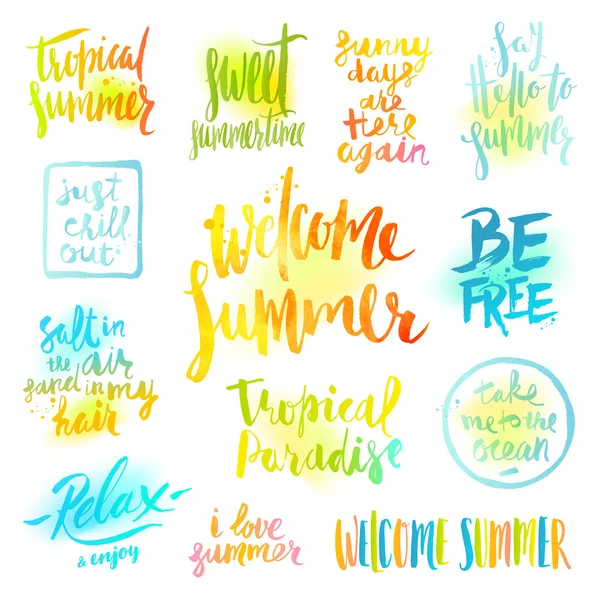 tropical
summer
sweet
summertime
sunny
days
are
here
again
Say
Hello to
summer
just
chill
out
welcome
summer
BE
FREE
salt in
the air
sand in my
hair
tropical
Paradise
take
me to the
ocean
Relax
& enjoy
i love
summer
WELCOME SUMMER